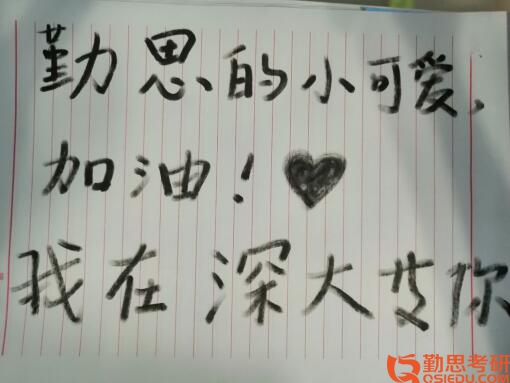 勤思的小可爱，
加油！
我在深大等你
勤思考研
QSIEDU.COM